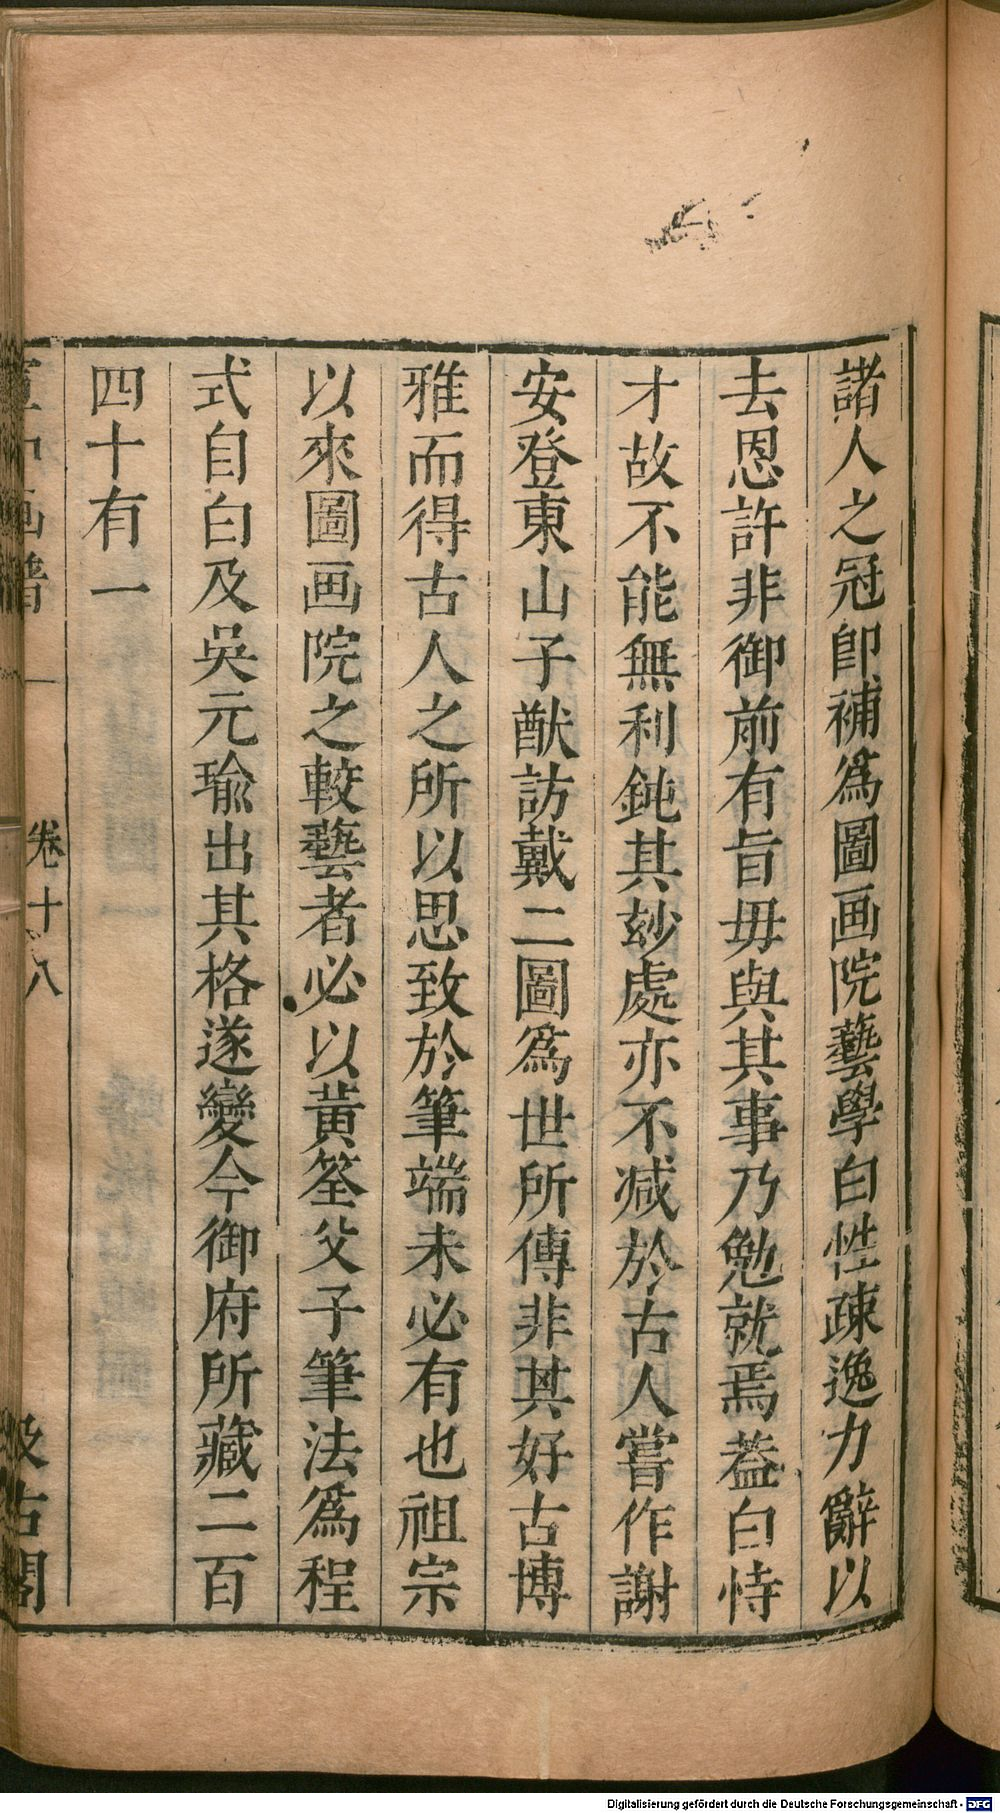 諸人之冠卽補爲圖画院藝學白性疎逸力辭以
去恩許非御前有旨毋與其事乃勉就焉葢白恃
才故不能無利鈍其玅處亦不减於古人嘗作謝
安登東山子猷訪戴二圖爲世所傳非其好古博
雅而得古人之所以思致於筆端未必有也祖宗
以來圖画院之較藝者必以黄筌父子筆法爲程
式自白及吳元瑜出其格遂變今御府所藏二百
四十有一
宣和画譜 卷十八 汲古閣
Digitalisierung gefördert durch die Deutsche Forschungsgemeinschaft - DFG